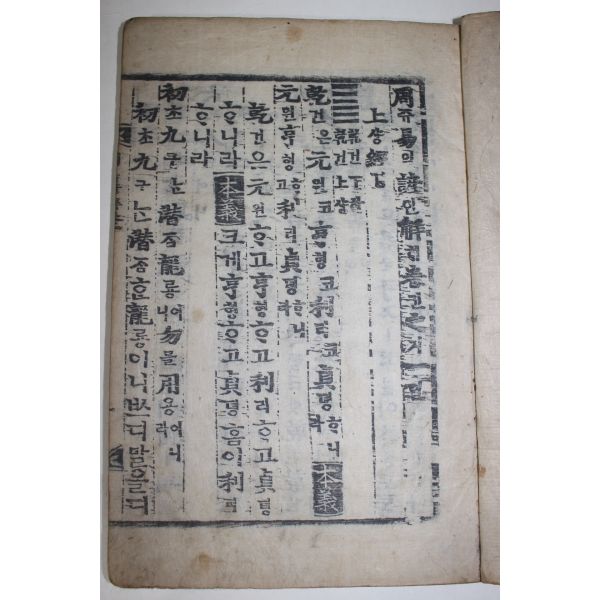 周쥬易역諺언解ᄒᆡ卷권之지一일
上샹經경
䷀乾건下하
乾건上샹
乾건은元원코亨형코利리코貞뎡ᄒᆞ니라 本義
元원亨형ᄒᆞ고利리貞뎡ᄒᆞ니라
乾건은元원ᄒᆞ고亨형ᄒᆞ고利리ᄒᆞ고貞뎡
ᄒᆞ니라 本義 크게亨형ᄒᆞ고貞뎡홈이利리
ᄒᆞ니라
初초九구ᄂᆞᆫ潛ᄌᆞᆷ龍룡이니勿믈用용이니라
初초九구ᄂᆞᆫ潛ᄌᆞᆷᄒᆞᆫ龍룡이니ᄡᅳ디말을디